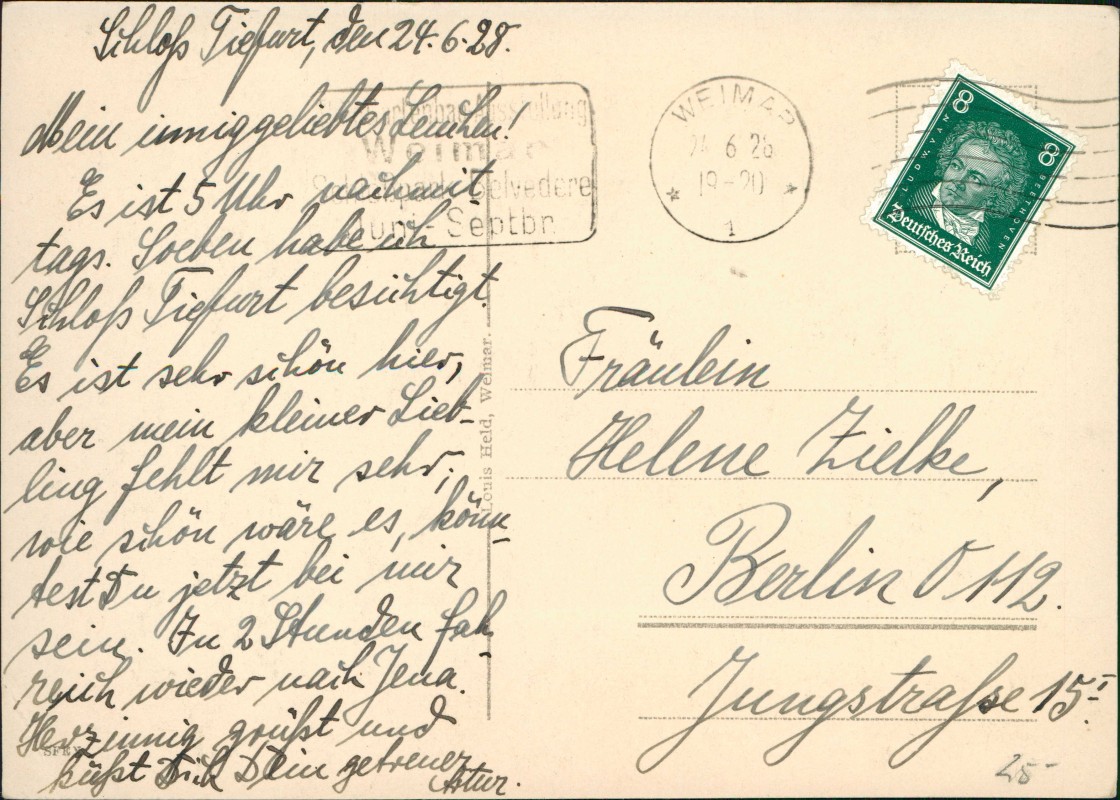 Schloß Tiefurt, den 24.6.28.
Mein inniggeliebtes Lenchen!
Es ist 5 Uhr nachmit-
tags. Soeben habe ich
Schloß Tiefurt besichtigt.
Es ist sehr schön hier,
aber mein kleiner Lieb-
ling fehlt mir sehr,
wie schön wäre es, könn-
test Du jetzt bei mir
sein. In 2 Stunden fah-
re ich wieder nach Jena.
Herzinnig grüßt und
küßt Dich Dein getreuer
Artur.
Weimar
Belvedere
Juni - Septbr.
WEIMAR
24.6.28
19-20
1
8
8
LUDW. VAN
BEETHOVEN
Deutsches Reich
Louis Held, Weimar.
Fräulein
Helene Zielke,
Berlin O 112.
Jungstraße 15 I.
25-